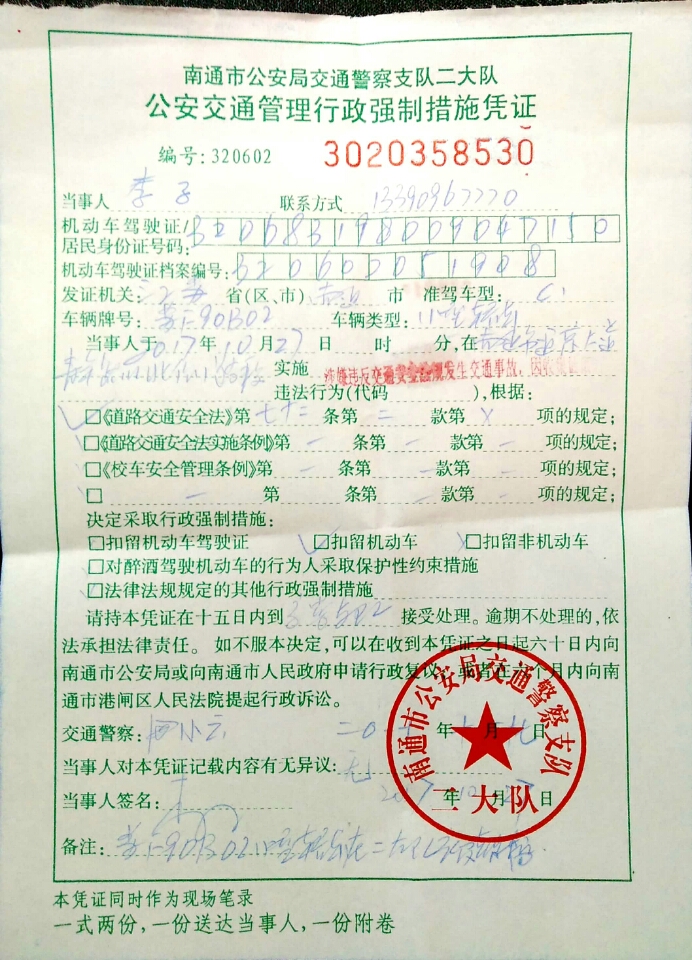 南通市公安局交通警察支队二大队
公安交通管理行政强制措施凭证
编号:320602 3020358530
当事人 李子 联系方式 13390967770
机动车驾驶证/
居民身份证号码: 320683198009047150
机动车驾驶证档案编号: 320600051908
发证机关: 江苏 省(区、市) 南通 市 准驾车型: C1
车辆牌号: 苏F90B02 车辆类型: 小型轿车
当事人于 2017 年 10 月 27 日 时 分,在
实施 涉嫌违反交通安全法规发生交通事故,
违法行为(代码 ),根据:
□《道路交通安全法》第 七十二 条第 二 款第 X 项的规定;
□《道路交通安全法实施条例》第 一 条第 一 款第 一 项的规定;
□《校车安全管理条例》第 一 条第 一 款第 一 项的规定;
□ 一 第 条第 一 款第 一 项的规定;
决定采取行政强制措施:
□扣留机动车驾驶证 □扣留机动车 □扣留非机动车
□对醉酒驾驶机动车的行为人采取保护性约束措施
□法律法规规定的其他行政强制措施
请持本凭证在十五日内到 接受处理。逾期不处理的,依
法承担法律责任。如不服本决定,可以在收到本凭证之日起六十日内向
南通市公安局或向南通市人民政府申请行政复议,或者在 个月内向南
通市港闸区人民法院提起行政诉讼。
交通警察: 年 月 日
当事人对本凭证记载内容有无异议: 无
当事人签名: 年 月 日
备注: 苏F90B02小型轿车在二大队
南通市公安局交通警察支队
二大队
本凭证同时作为现场笔录
一式两份,一份送达当事人,一份附卷